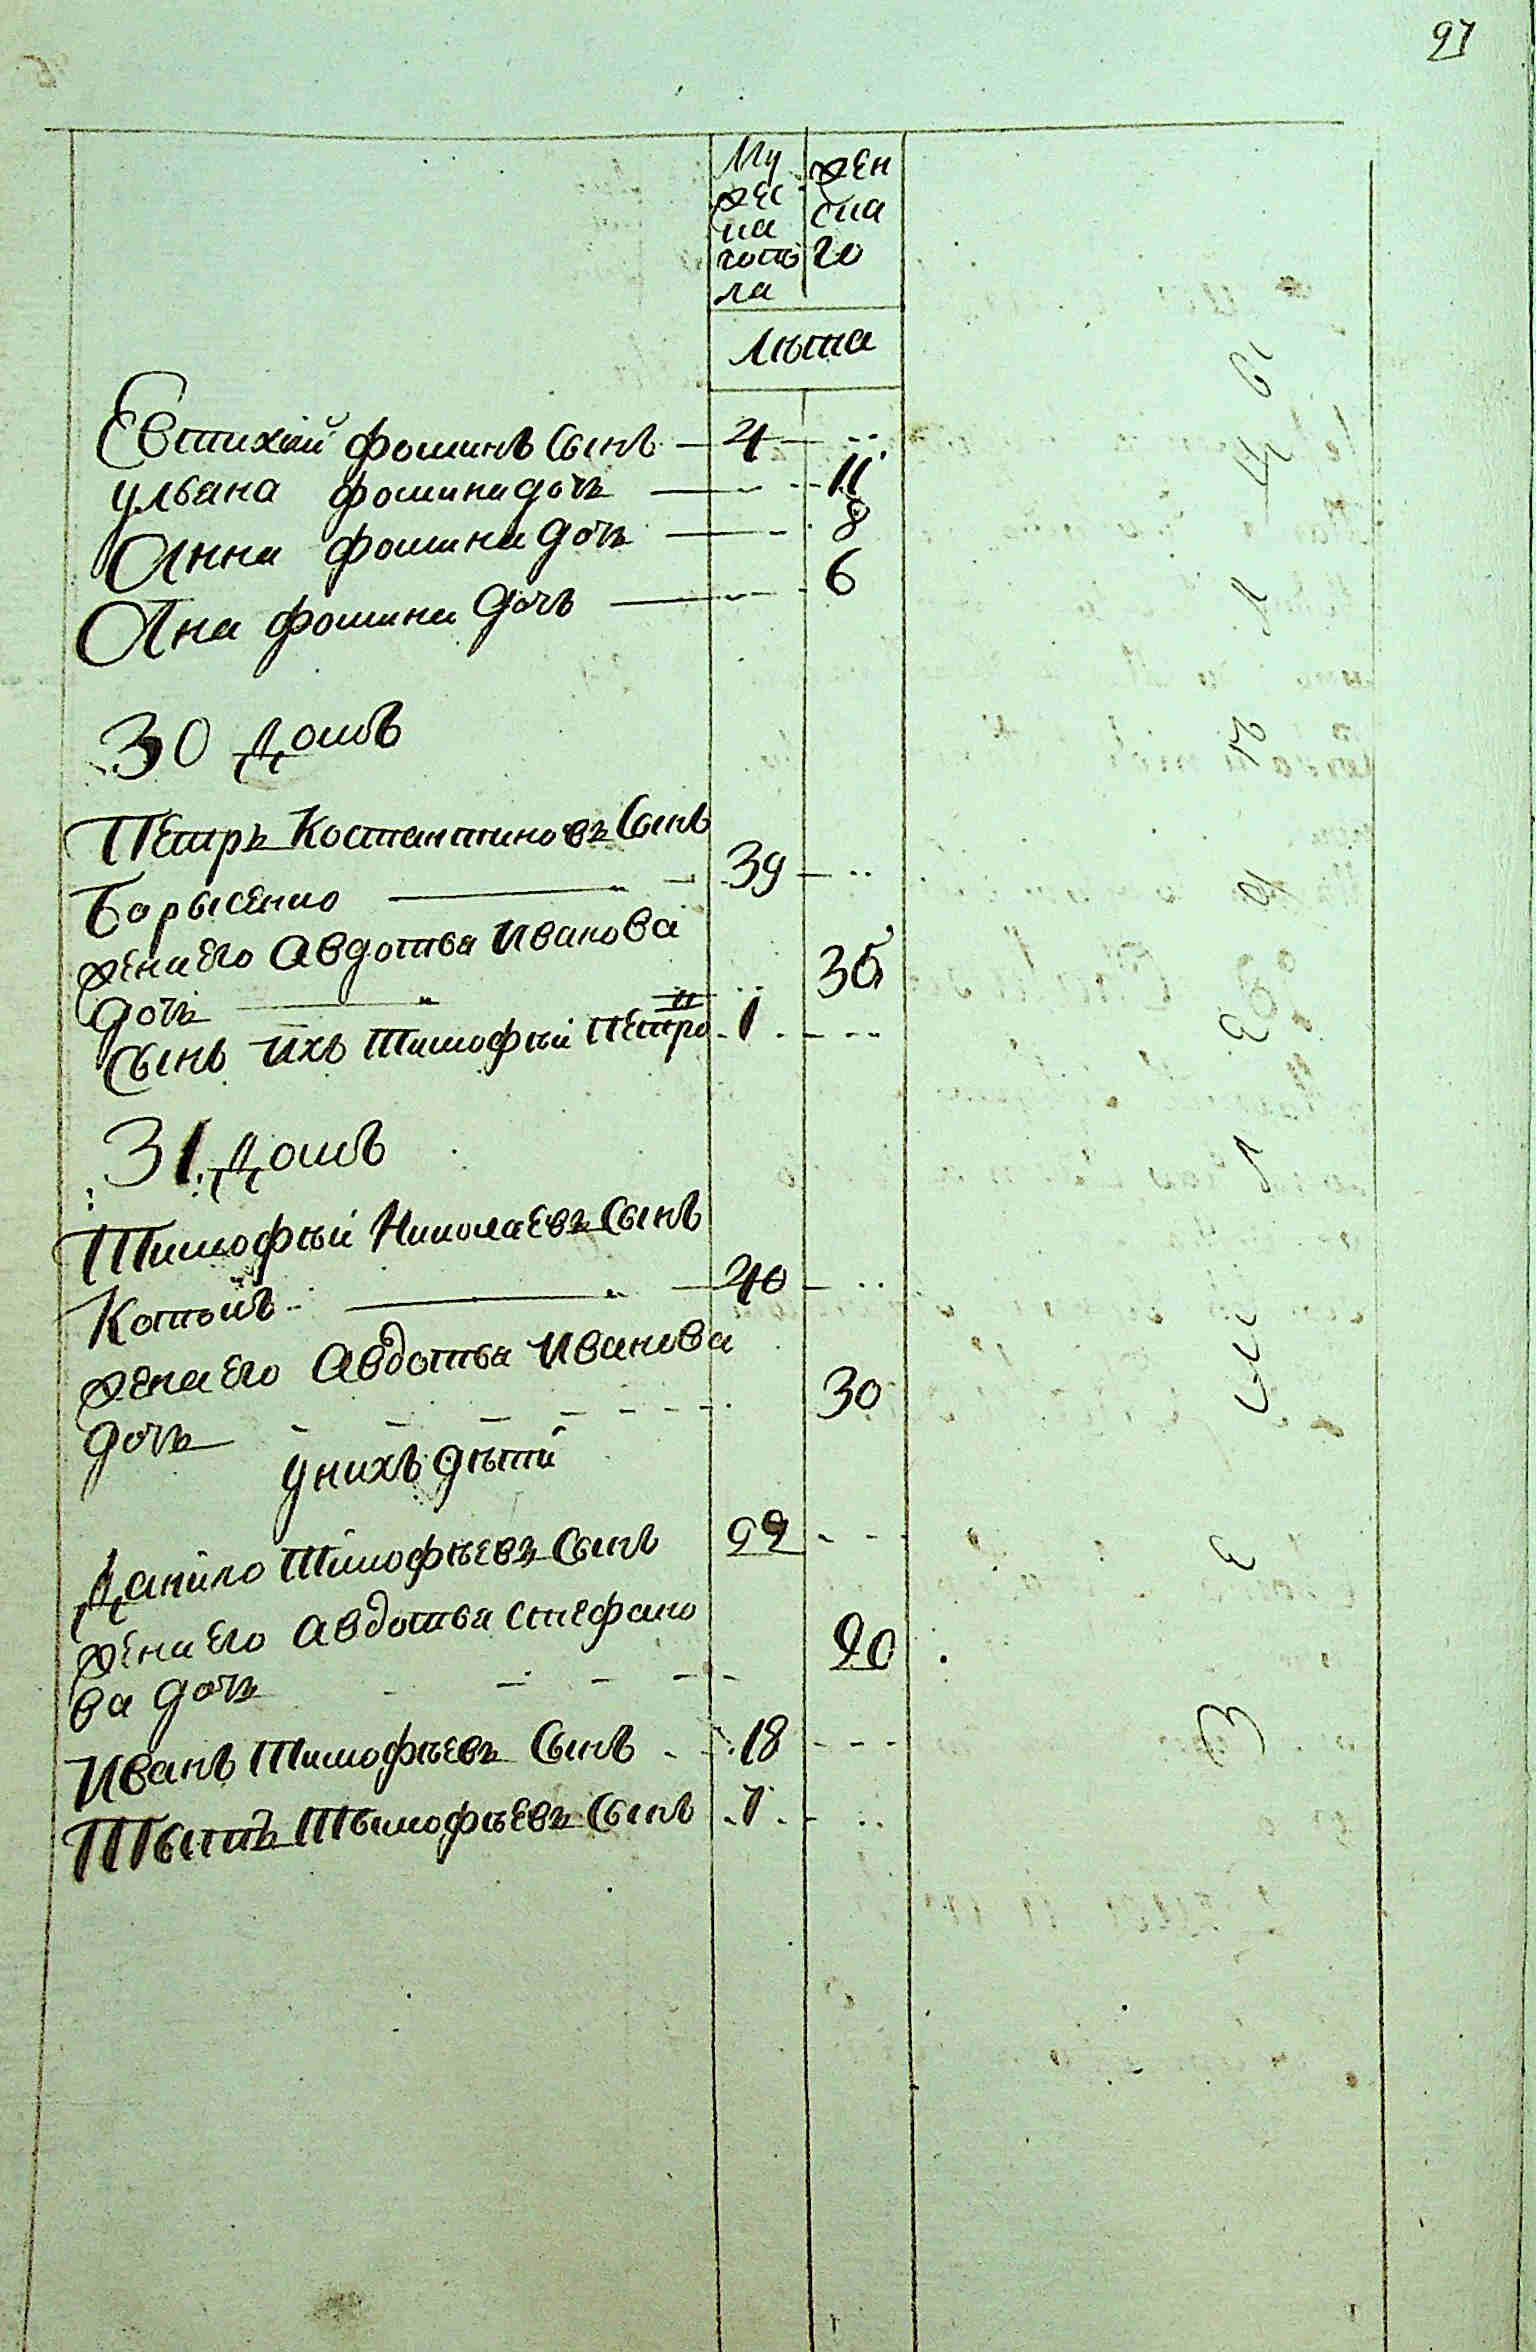 97
Му жен
жес ска
ка го
гопо
ла
Лѣта
Евтихій Фоминъ Сынъ — 4 — ..
Ульяна Фомина дочь — .. 11
Анна Фомина дочь — - 8
Яна Фомина дочь — .. 6
30 Домъ
Петръ Костантиновъ Сынъ
Борысенко — 39 — ..
жена его Авдотья Иванова
дочь — .. 35
Сынъ ихъ Тимофѣй Петро . 1 . - - -
31 Домъ
Тимофѣй Николаевъ Сынъ
— 40 — ..
жена его Авдотья Иванова
дочь - - - - - - - 30
У нихъ дѣти
Данило Тимофѣевъ Сынъ 22 - - -
жена его Авдотья Стефано
ва дочь - - - - - 20
Иванъ Тимофѣевъ Сынъ - 18 - - -
Тытъ Тымофѣевъ Сынъ . 1 . - ..